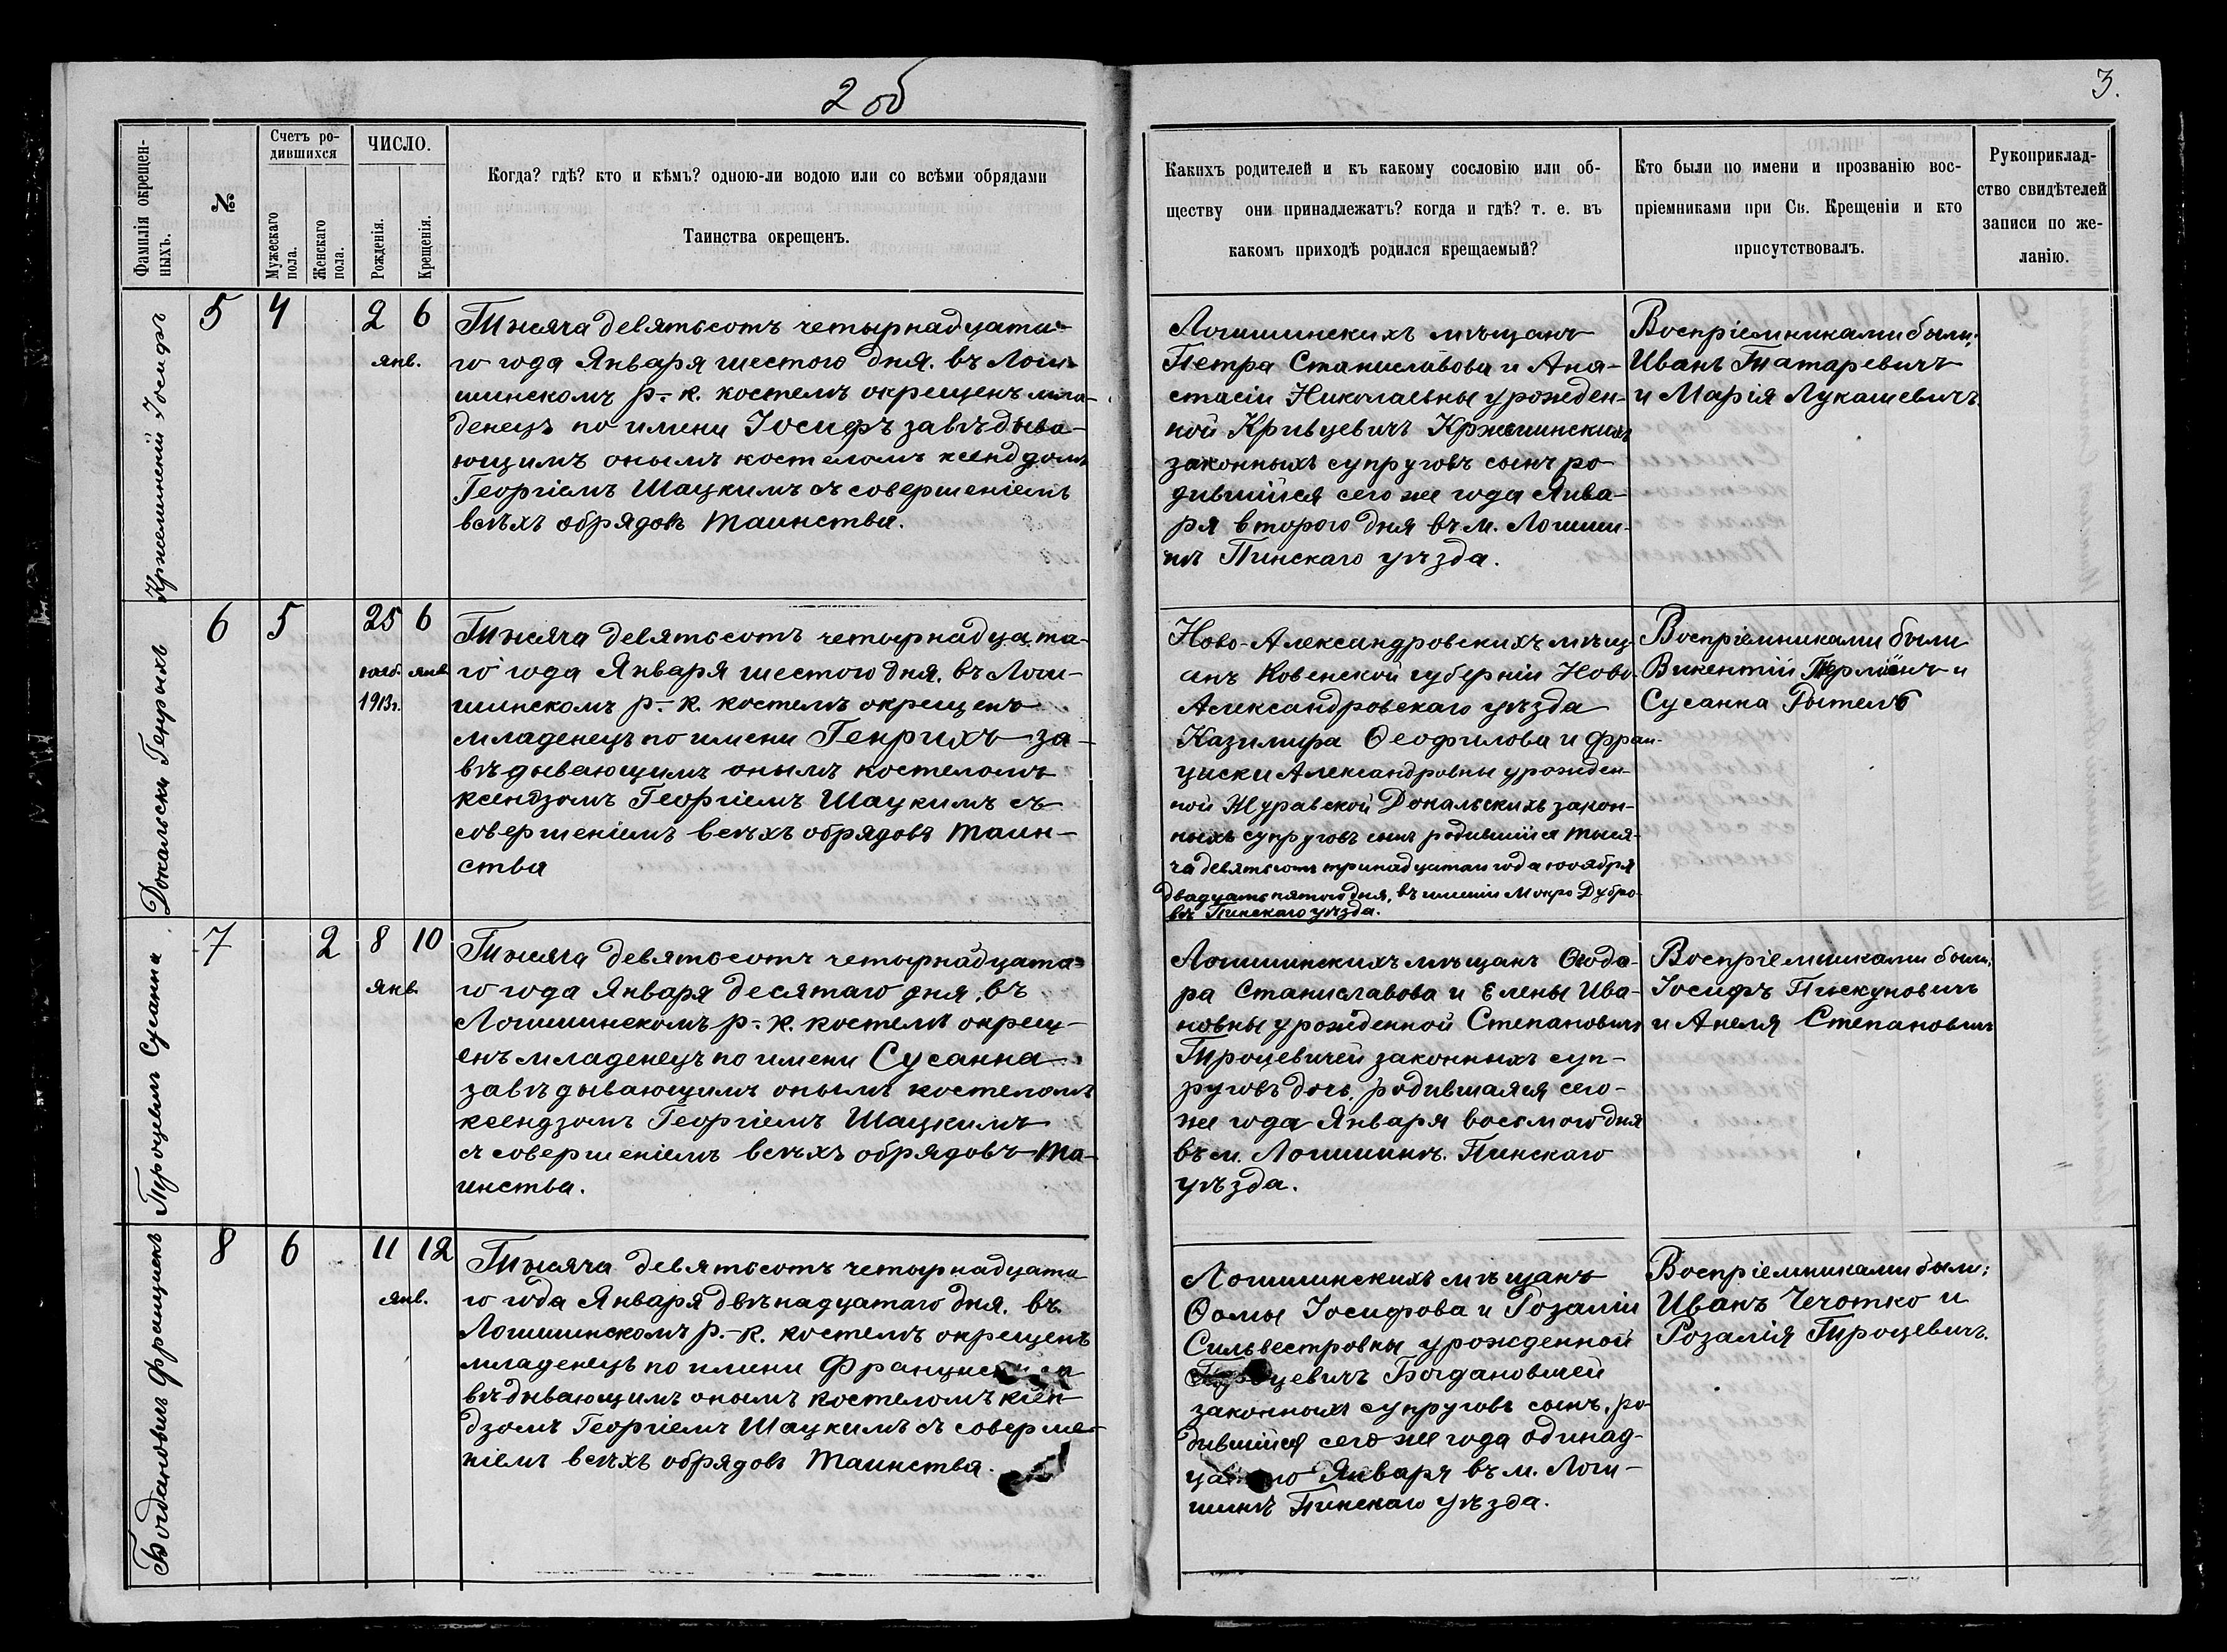 2 об
3.
Фамилія окрещен-
ныхъ.
№
Счетъ ро-
дившихся
Мужескаго
пола.
Женскаго
пола.
ЧИСЛО.
Рожденія.
Крещенія.
Когда? гдѣ? кто и кѣмъ? одною-ли водою или со всѣми обрядами
Таинства окрещенъ.
Какихъ родителей и къ какому сословію или об-
ществу они принадлежатъ? когда и гдѣ? т. е. въ
какомъ приходѣ родился крещаемый?
Кто были по имени и прозванію вос-
пріемниками при Св. Крещеніи и кто
присутствовалъ.
Рукоприклад-
ство свидѣтелей
записи по же-
ланію.
Кржеминскій Іосифъ
5 4 2 6
янв.
Тысяча девятьсотъ четырнадцата-
го года Января шестого дня. въ Логи-
шинскомъ р.-к. костелѣ окрещенъ мла-
денецъ по имени Іосифъ завѣдыва-
ющимъ онымъ костеломъ ксендзомъ
Георгіемъ Шацкимъ съ совершеніемъ
всѣхъ обрядовъ Таинства.
Логишинскихъ мѣщанъ
Петра Станиславова и Ана-
стасіи Николаевны урожден-
ной Кривцевичъ Кржеминскихъ
законныхъ супруговъ сынъ ро-
дившійся сего же года Янва-
ря второго дня въ м. Логиши-
нѣ Пинскаго уѣзда.
Воспріемниками были:
Иванъ Татаревичъ
и Марія Лукашевичъ.
Докальски Генрихъ
6 5 25 6
нояб. янв.
1913г.
Тысяча девятьсотъ четырнадцата-
го года Января шестого дня. въ Логи-
шинскомъ р.-к. костелѣ окрещенъ
младенецъ по имени Генрихъ за-
вѣдывающимъ онымъ костеломъ
ксендзомъ Георгіемъ Шацкимъ съ
совершеніемъ всѣхъ обрядовъ Таин-
ства
Ново-Александровскихъ мѣщ-
анъ Ковенской губерніи Ново-
Александровскаго уѣзда
Казимира Ѳеофилова и Фран-
циски Александровны урожден-
ной Журавской Докальскихъ закон-
ныхъ супруговъ сынъ родившійся тыся-
ча девятьсотъ тринадцатаго года ноября
двадцать пятого дня, въ имѣніи Мокро Дубро-
вѣ Пинскаго уѣзда.
Воспріемниками были
Викентій и
Сусанна Рытель
Троцевичъ Сусанна
7 2 8 10
янв.
Тысяча девятьсотъ четырнадцата-
го года Января десятаго дня, въ
Логишинскомъ р.-к. костелѣ окрещ-
енъ младенецъ по имени Сусанна
завѣдывающимъ онымъ костеломъ
ксендзомъ Георгіемъ Шацкимъ
съ совершеніемъ всѣхъ обрядовъ Та-
инства.
Логишинскихъ мѣщанъ Ѳеодо-
ра Станиславова и Елены Ива-
новны урожденной Степановичъ
Троцевичей законныхъ суп-
руговъ дочь, родившаяся сего-
же года Января восьмого дня
въ м. Логишинѣ. Пинскаго
уѣзда.
Воспріемниками были:
Іосифъ Пискуновичъ
и Анеля Степановичъ
Богдановичъ Францискъ
8 6 11 12
янв.
Тысяча девятьсотъ четырнадцата
го года Января двѣнадцатаго дня. въ
Логишинскомъ р.-к. костелѣ окрещенъ
младенецъ по имени Францискъ за
вѣдывающимъ онымъ костеломъ ксен-
дзомъ Георгіемъ Шацкимъ съ соверше-
ніемъ всѣхъ обрядовъ Таинства.
Логишинскихъ мѣщанъ
Ѳомы Іосифова и Розаліи
Сильвестровны урожденной
Богдановичей
законныхъ супруговъ сынъ, ро-
дившійся сего же года одинад-
цатаго Января въ м. Логи-
шинѣ Пинскаго уѣзда.
Воспріемниками были:
Иванъ Чечотко и
Розалія Троцевичъ.